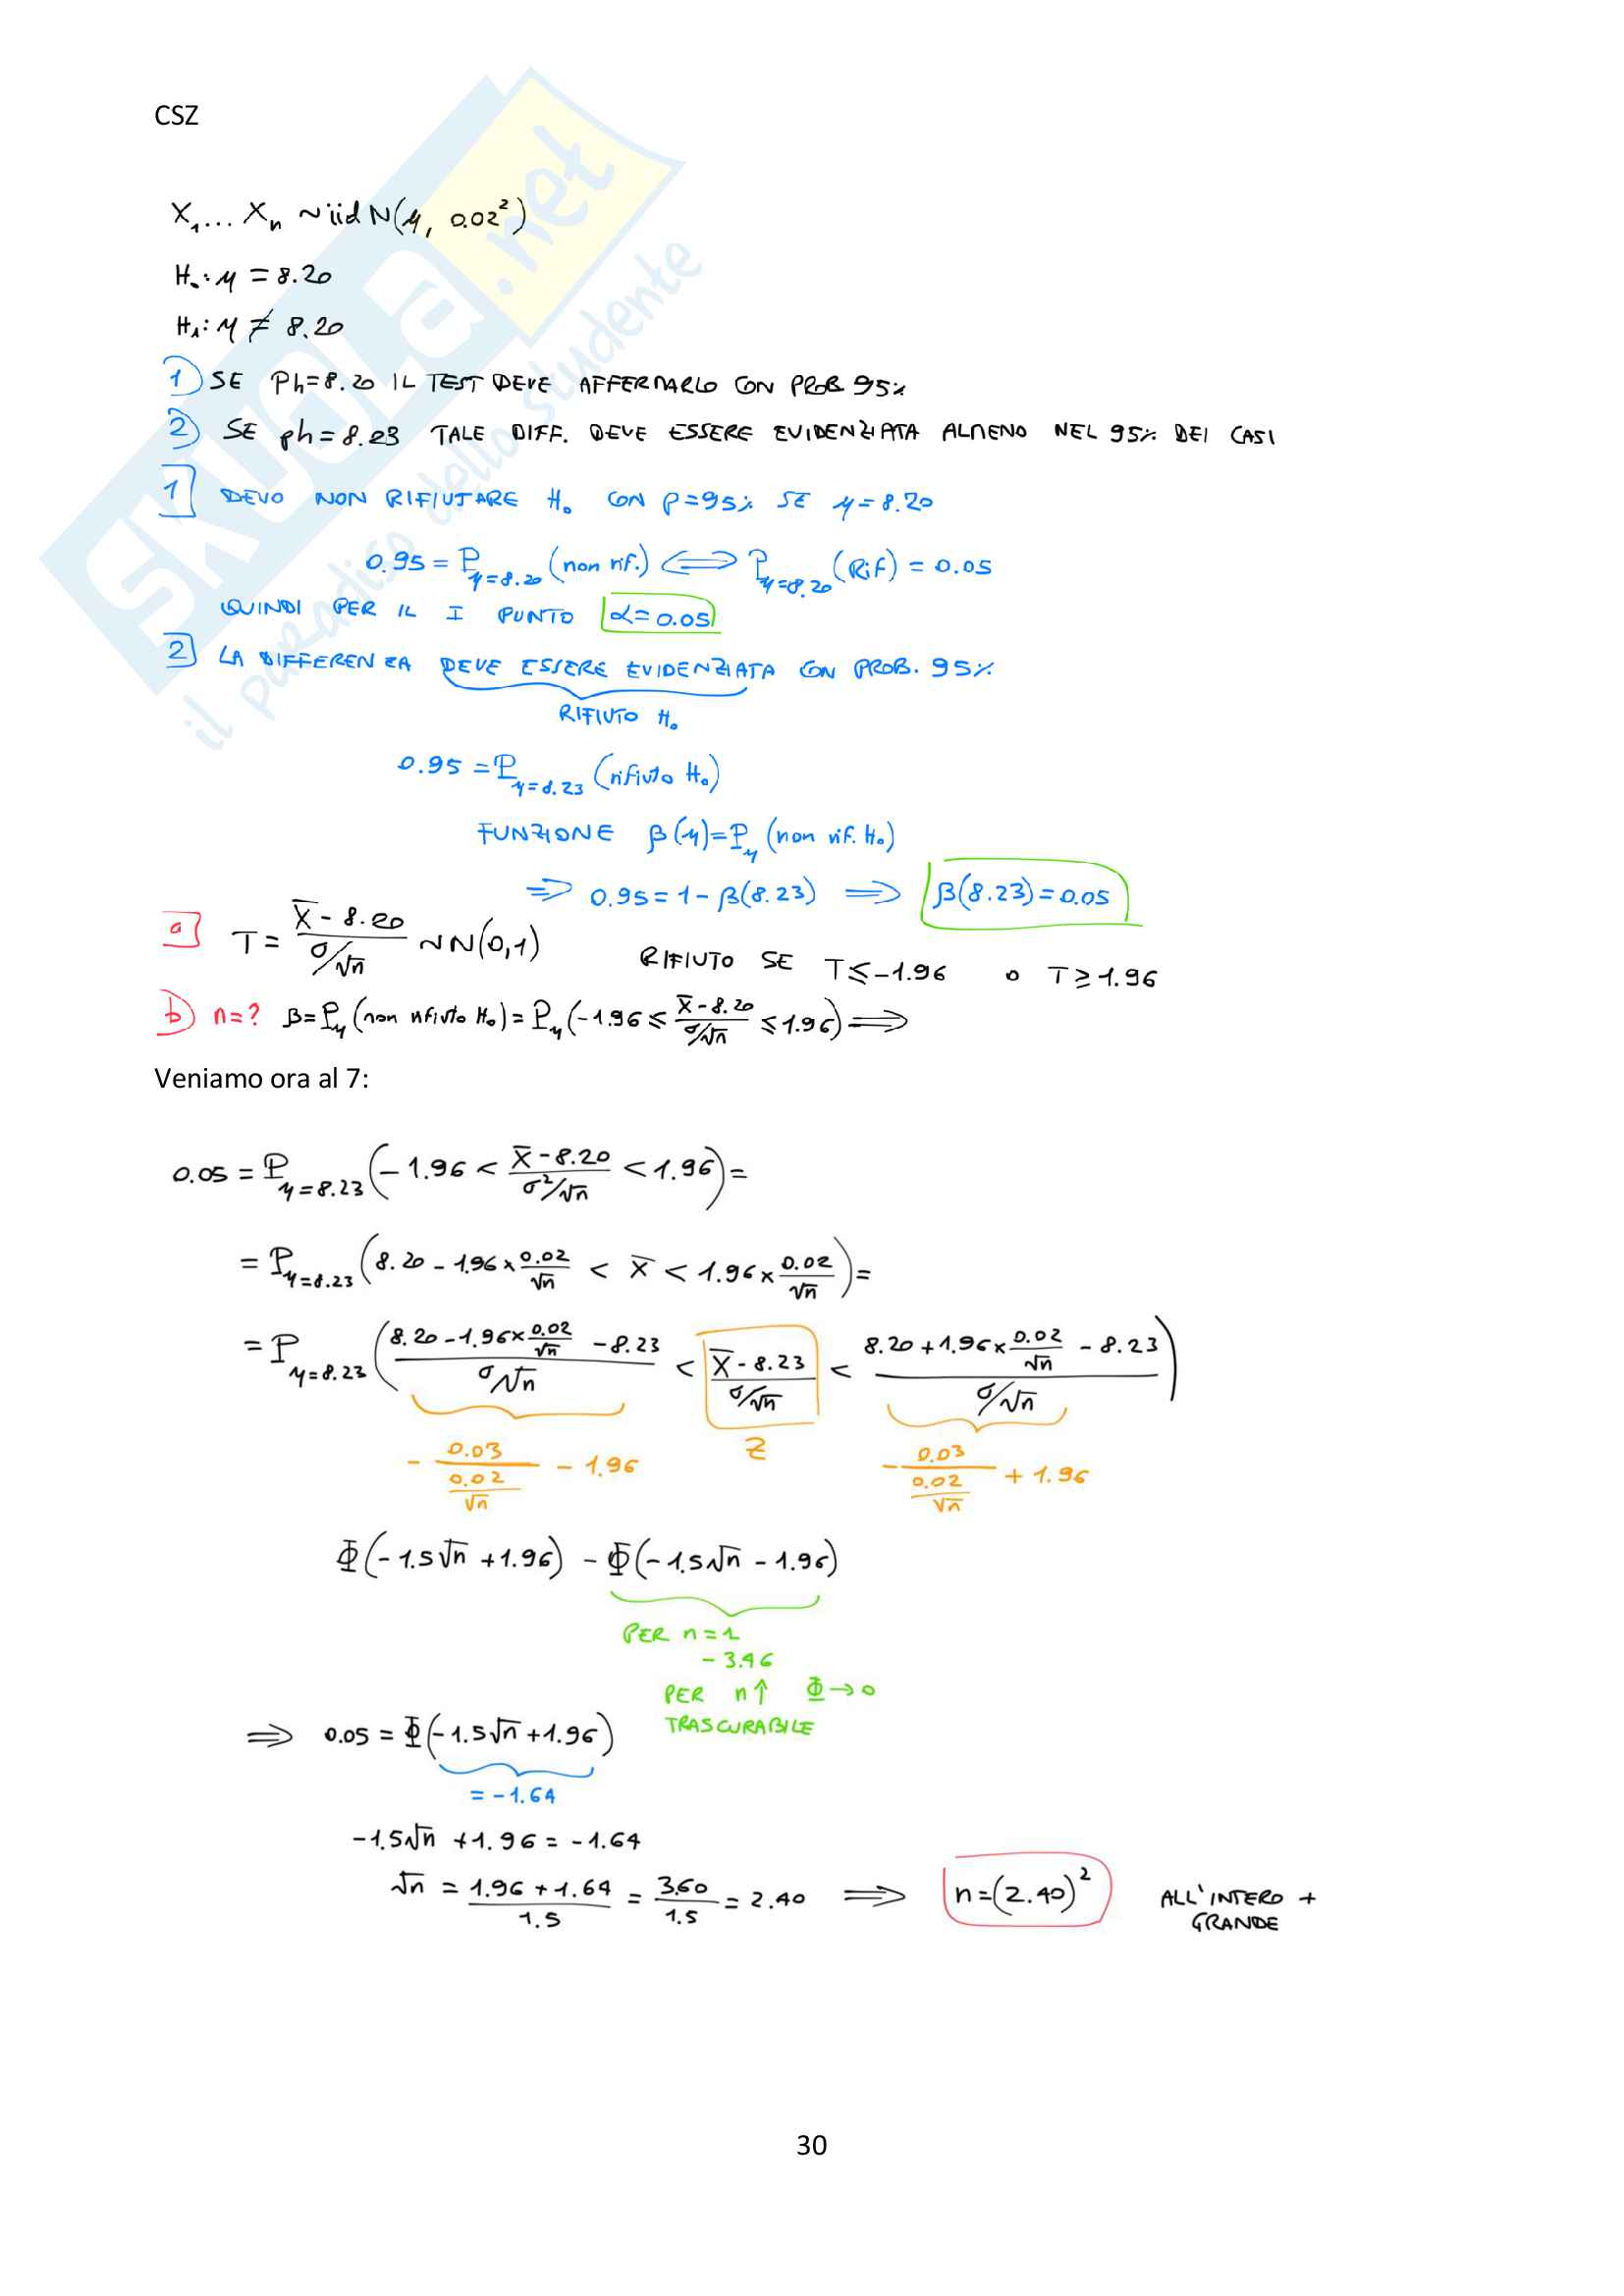 CSZ
SKUOLA.net
il paradiso dello studente
X₁... Xₙ ~ iid N(μ, 0.02²)
H₀: μ = 8.20
H₁: μ ≠ 8.20
1) SE Ph=8.20 IL TEST DEVE AFFERMARLO CON PROB 95%
2) SE ph=8.23 TALE DIFF. DEVE ESSERE EVIDENZIATA ALMENO NEL 95% DEI CASI
1 DEVO NON RIFIUTARE H₀ CON P=95% SE μ=8.20
0.95 = P_{μ=8.20} (non rif.) ⟺ P_{μ=8.20} (Rif) = 0.05
QUINDI PER IL I PUNTO α=0.05
2 LA DIFFERENZA DEVE ESSERE EVIDENZIATA CON PROB. 95%
RIFIUTO H₀
0.95 = P_{μ=8.23} (rifiuto H₀)
FUNZIONE β(μ)=P_μ (non rif. H₀)
⇒ 0.95 = 1 - β(8.23) ⇒ β(8.23)=0.05
a T = (X̄ - 8.20)/(σ/√n) ~ N(0,1) RIFIUTO SE T ≤ -1.96 o T ≥ 1.96
b) n=? β=P_μ (non rifiuto H₀) = P_μ (-1.96 ≤ (X̄ - 8.20)/(σ/√n) ≤ 1.96) ⇒
Veniamo ora al 7:
0.05 = P_{μ=8.23} (-1.96 < (X̄ - 8.20)/(σ²/√n) < 1.96) =
= P_{μ=8.23} (8.20 - 1.96 × 0.02/√n < X̄ < 1.96 × 0.02/√n) =
= P_{μ=8.23} ((8.20 - 1.96 × 0.02/√n - 8.23)/(σ/√n) < (X̄ - 8.23)/(σ/√n) < (8.20 + 1.96 × 0.02/√n - 8.23)/(σ/√n))
- 0.03/(0.02/√n) - 1.96 Z - 0.03/(0.02/√n) + 1.96
Φ(-1.5√n + 1.96) - Φ(-1.5√n - 1.96)
PER n=1
- 3.46
PER n↑ Φ→0
TRASCURABILE
⇒ 0.05 = Φ(-1.5√n + 1.96)
= -1.64
-1.5√n + 1.96 = -1.64
√n = (1.96 + 1.64)/1.5 = 3.60/1.5 = 2.40 ⇒ n=(2.40)² ALL'INTERO +
GRANDE
30